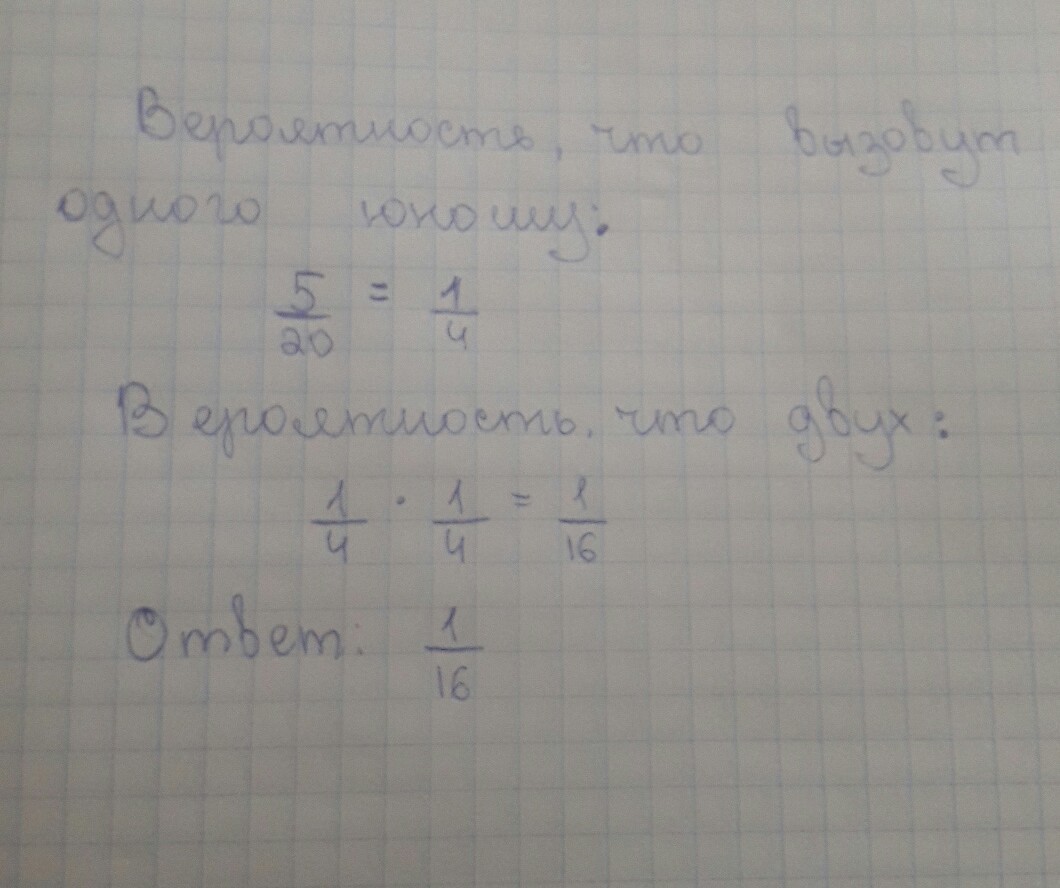 Вероятность, что вызовут
одного юношу:
5/20 = 1/4
Вероятность, что двух:
1/4 · 1/4 = 1/16
Ответ: 1/16